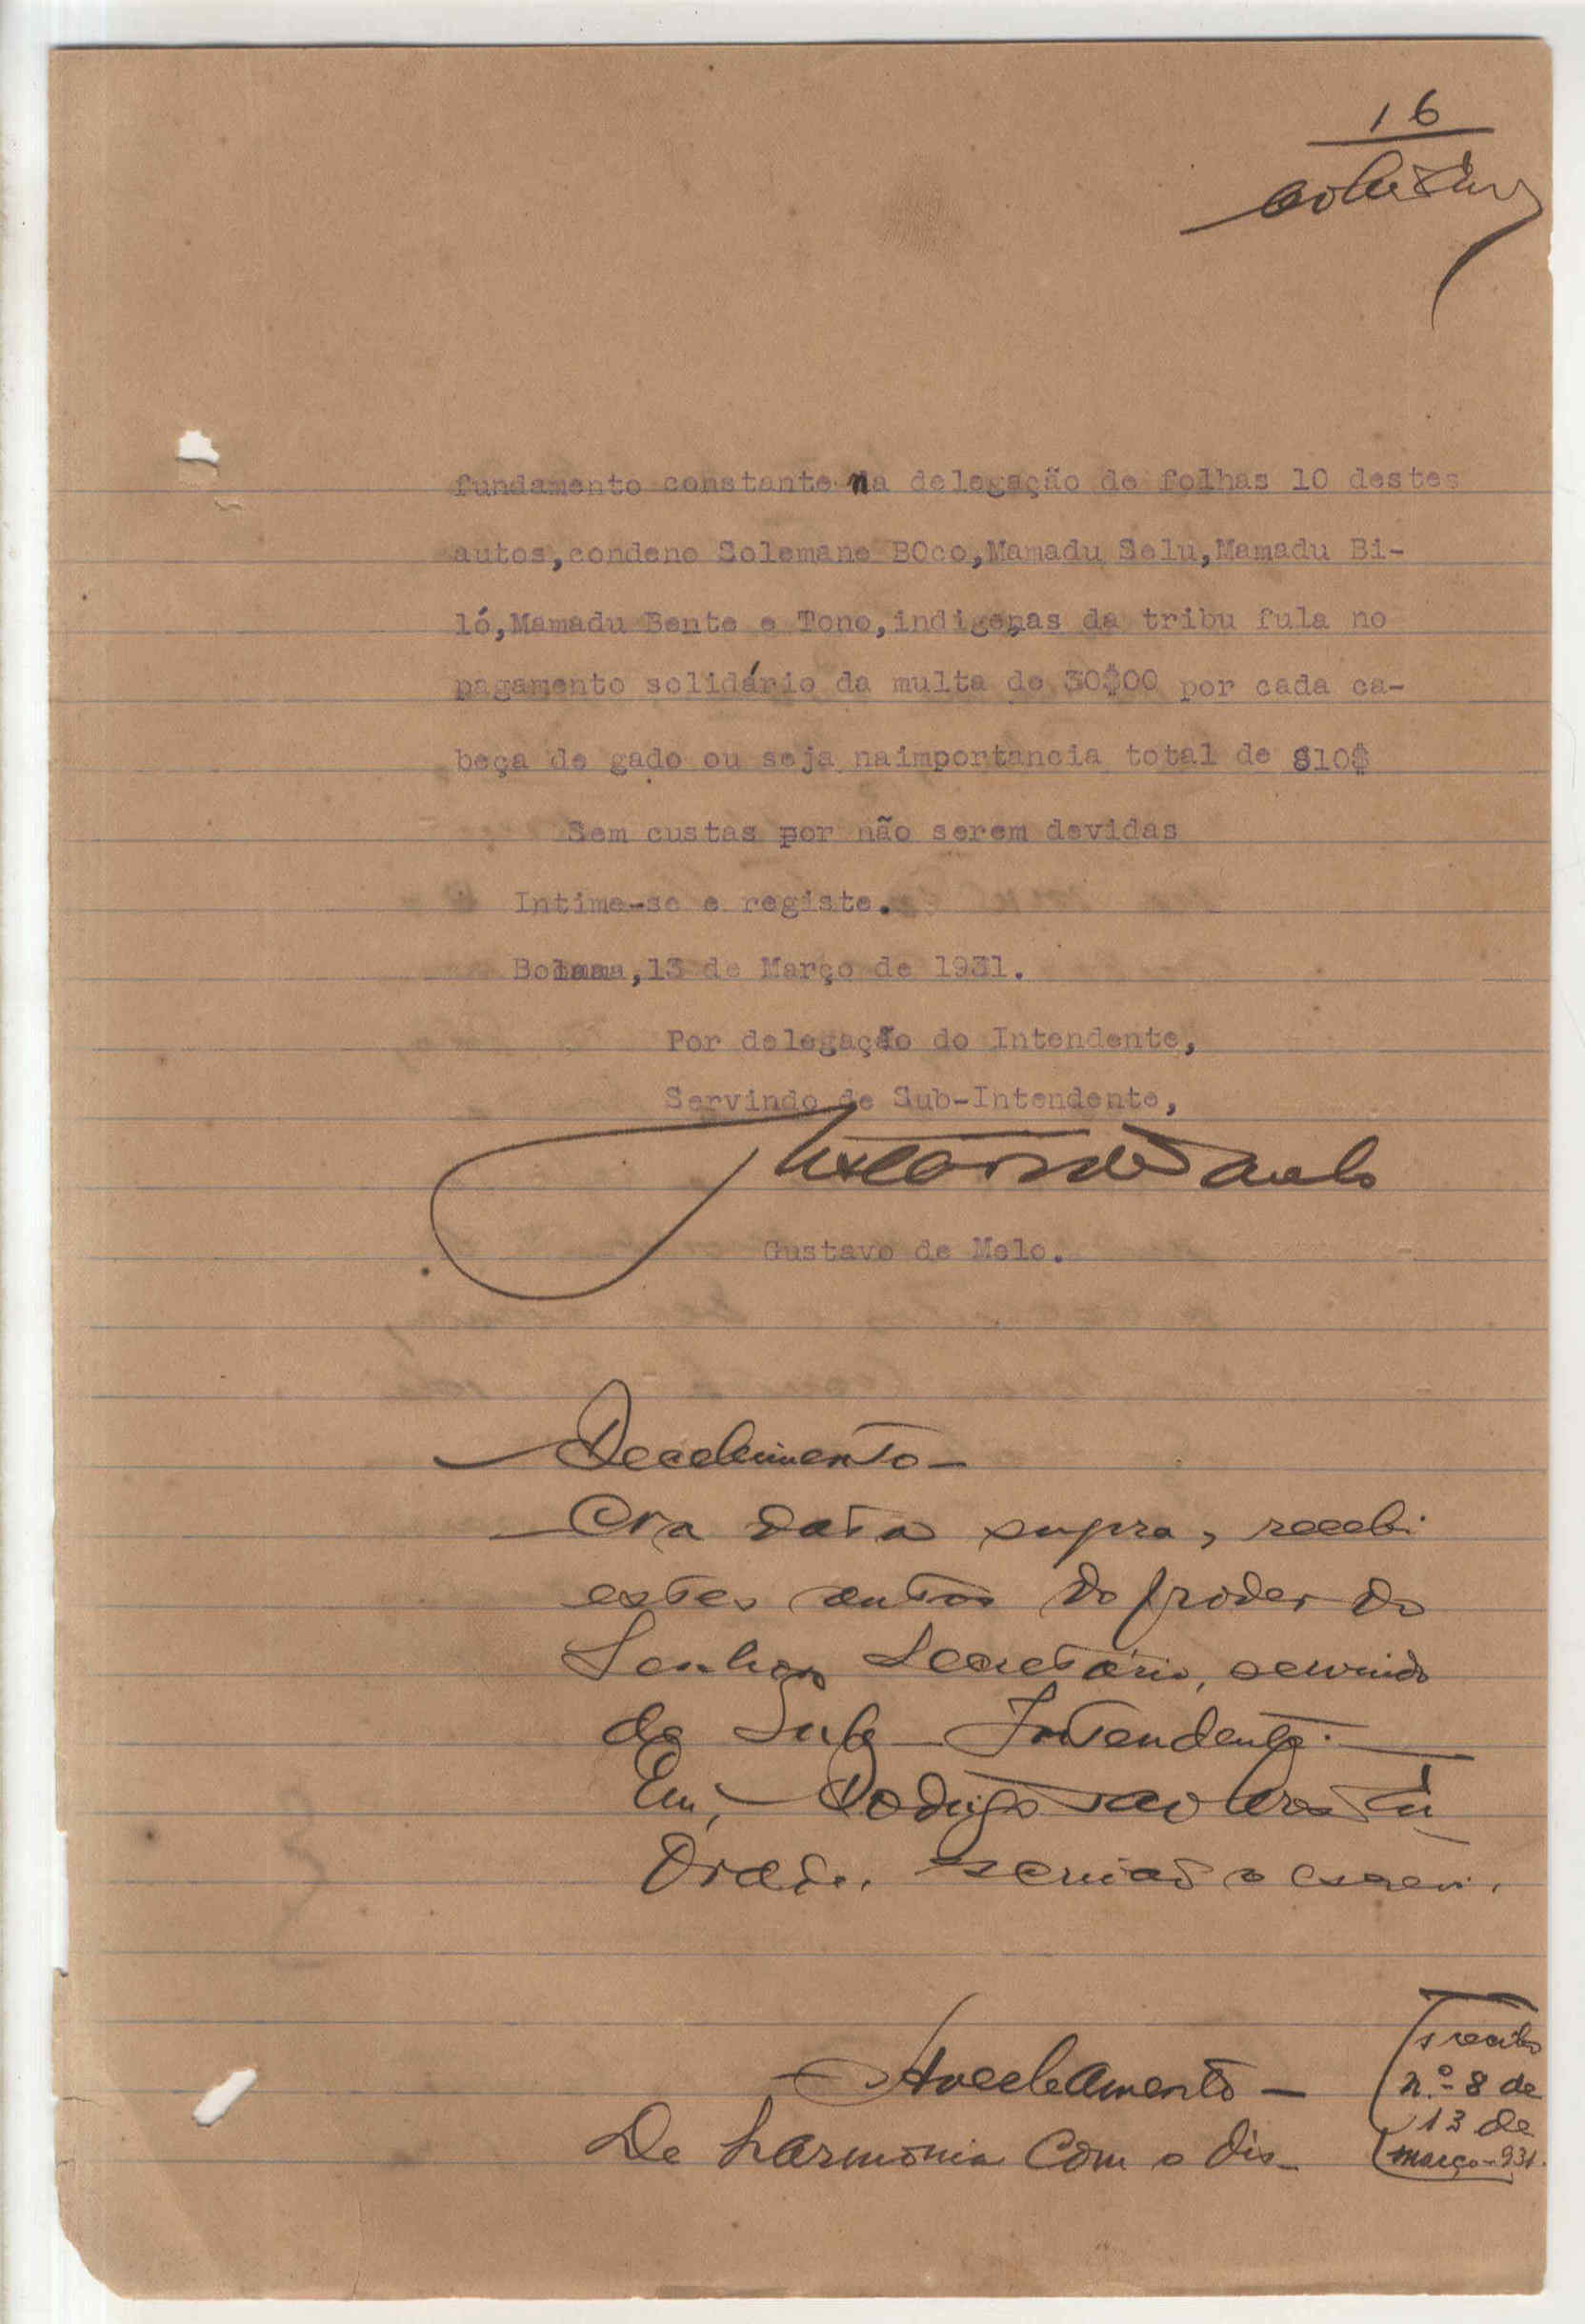 16
fundamento constante na delegação de folhas 10 destes
autos,condeno Solemane BOco,Mamadu Selu,Mamadu Bi-
ló,Mamadu Bente e Tono,indigenas da tribu fula no
pagamento solidário da multa de 30$00 por cada ca-
beça de gado ou seja naimportancia total de 810$
Sem custas por não serem devidas
Intime-se e registe.
Bolama,13 de Março de 1931.
Por delegação do Intendente,
Servindo de Sub-Intendente,
Gustavo de Melo
Gustavo de Melo.
Recebimento-
Na data supra, recebi
estes autos do poder do
Senhor Secretário, servindo
de Sub-Intendente.
Eu, Rodrigo
o escrevi.
recibo
n.º 8 de
13 de
março-931.
De harmonia com o dis-